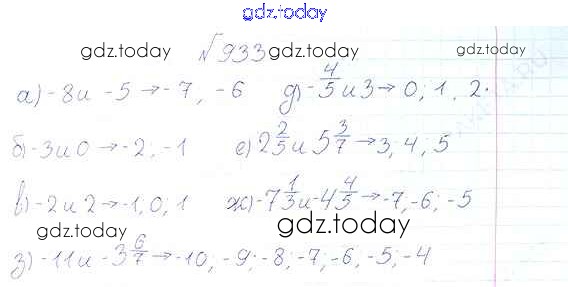 gdz.today
gdz.today №933 gdz.today gdz.today
а) -8 и -5 → -7, -6 д) -4/5 и 3 → 0; 1, 2.
б) -3 и 0 → -2; -1 е) 2 2/5 и 5 3/7 → 3, 4, 5
в) -2 и 2 → -1, 0, 1 ж) -7 1/3 и -4 4/5 → -7, -6; -5
gdz.today gdz.today
з) -11 и -3 6/7 → -10; -9; -8; -7; -6, -5; -4